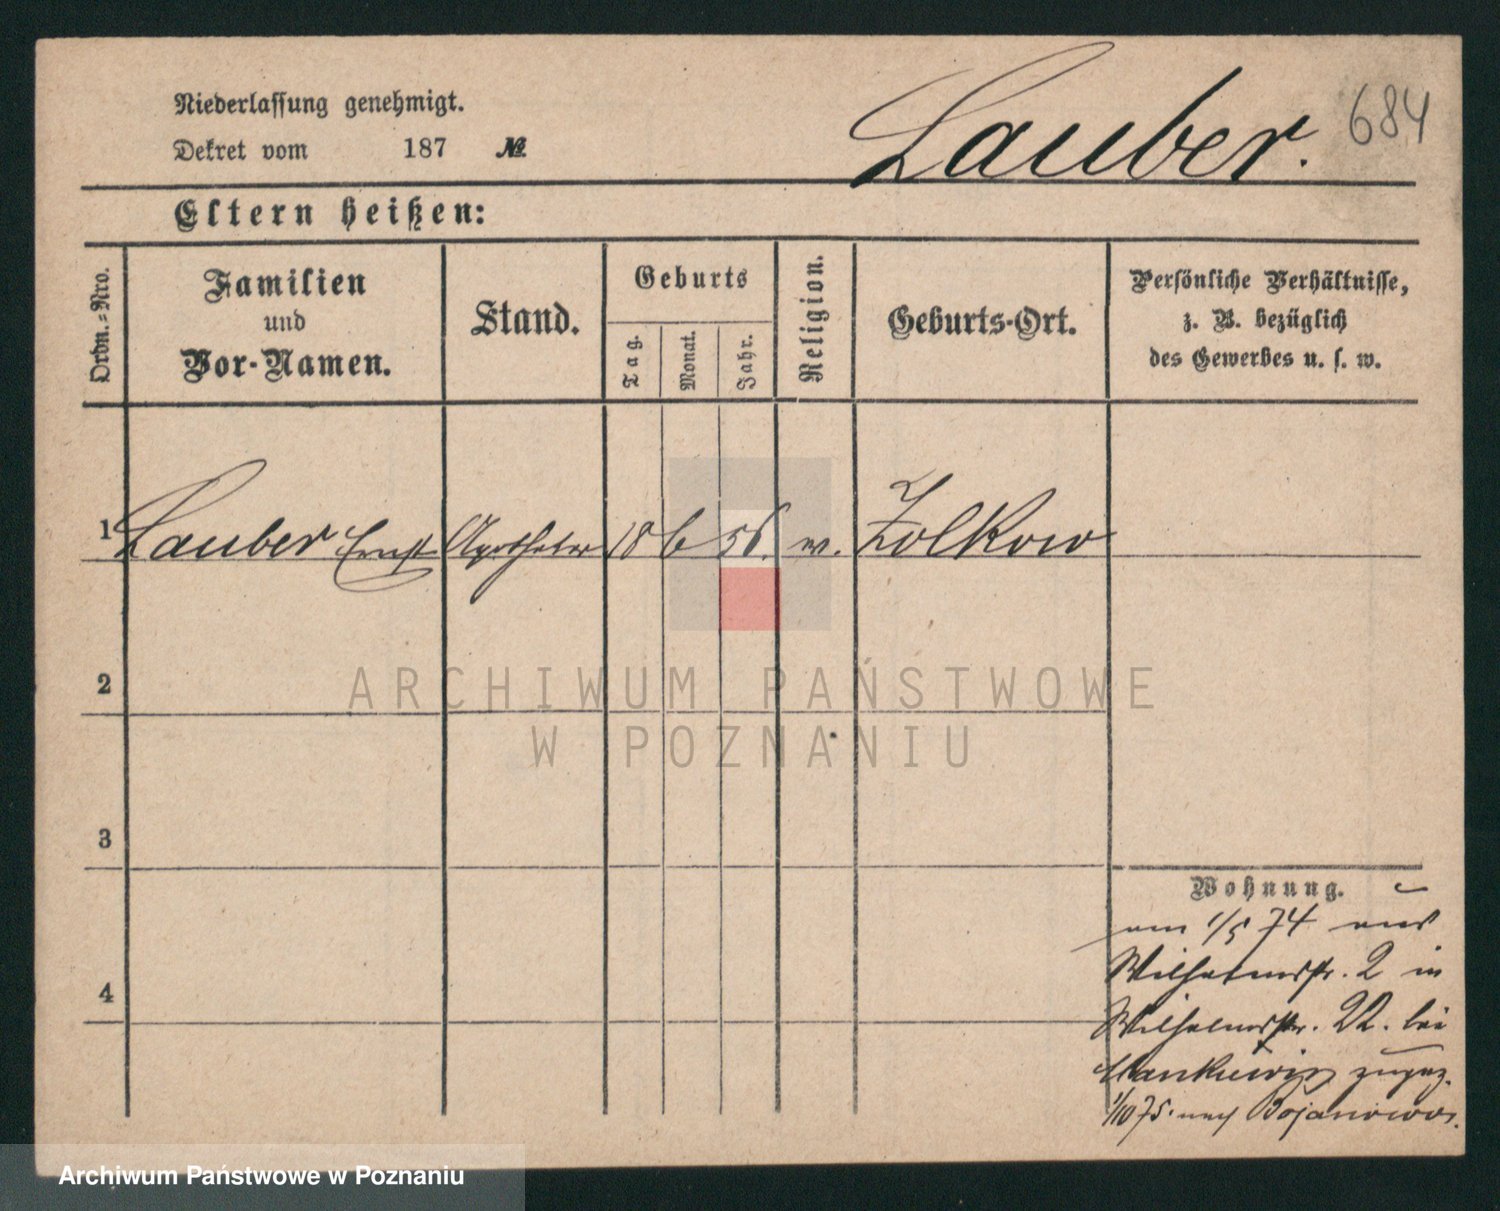 Niederlassung genehmigt.
Dekret vom 187 №
Lauber.
684
Eltern heißen:
Ordn.-Nro.
Familien
und
Vor-Namen.
Stand.
Geburts
Tag.
Monat.
Jahr.
Religion.
Geburts-Ort.
Persönliche Verhältnisse,
z. B. bezüglich
des Gewerbes u. s. w.
1 Lauber Ernst Apotheker 18 6 56. Zolkow
2
ARCHIWUM PAŃSTWOWE
W POZNANIU
3
4
Wohnung.
am 1/5 74 aus
Wilhelmstr. 2 in
Wilhelmstr. 22. bei
Mankiewicz zugez.
1/10 75. nach Bojanowo.
Archiwum Państwowe w Poznaniu